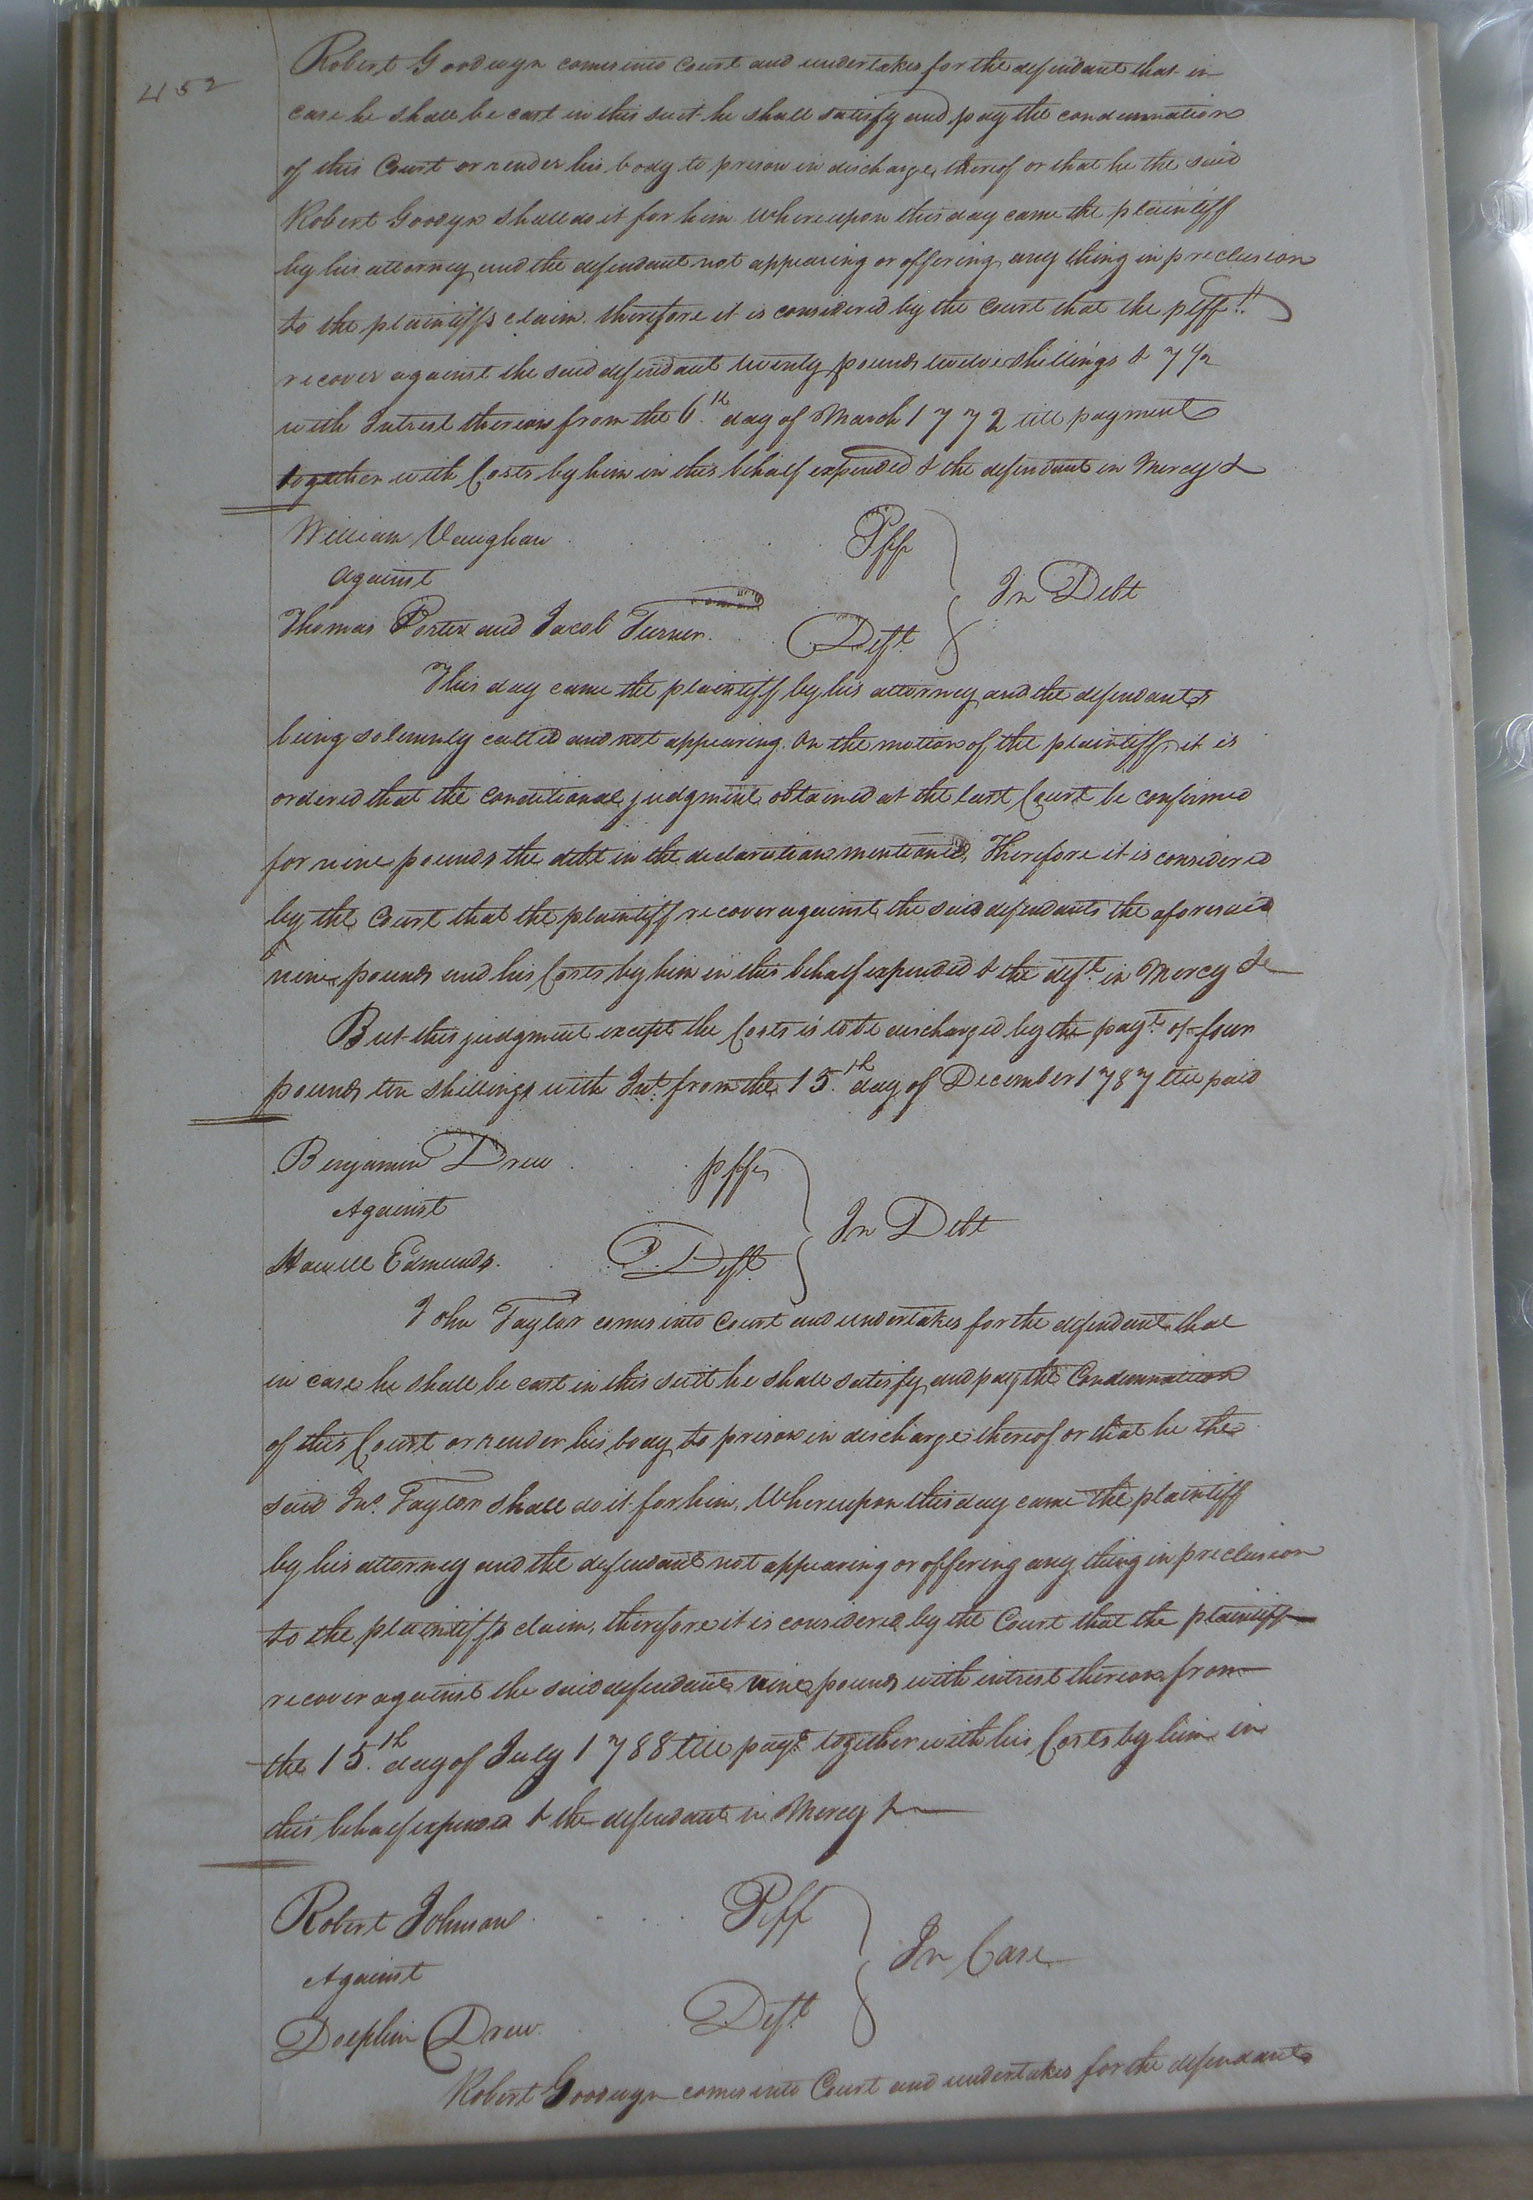 452
Robert Goodwyn comes into Court and undertakes for the defendant that in
case he shall be cast in this suit he shall satisfy and pay the condemnation
of this Court or render his body to prison in discharge thereof or that he the said
Robert Goodyn shall do it for him Whereupon this day came the plaintiff
by his attorney and the defendant not appearing or offering any thing in preclusion
to the plaintiffs claim. therefore it is considered by the Court that the plff
recover against the said defendant twenty pounds twelve shillings & 7 1/2
with Intrest thereon from the 6th day of March 1772 till payment
together with Costs by him in this behalf expended & the defendant in Mercy &
William Vaughan Plff
against In Debt
Thomas Porter and Jacob Turner. Deft
This day came the plaintiff by his attorney and the defendants
being solemnly called and not appearing. On the motion of the plaintiff it is
ordered that the conditional judgment obtained at the last Court be confirmed
for nine pounds the debt in the declaration mentioned, Therefore it is considered
by the Court that the plaintiff recover against the said defendants the aforesaid
nine pounds and his Costs by him in this behalf expended & the deft in Mercy &c
But this judgment except the Costs is to be discharged by the payt of four
pounds ten shillings with Int. from the 15th day of December 1787 till paid
Benjamin Drew plff
Against In Debt
Howell Edmunds. Deft
John Taylor comes into Court and undertakes for the defendant that
in case he shall be cast in this suit he shall satisfy and pay the Condemnation
of this Court or render his body to prison in discharge thereof or that he the
said Jno. Taylor shall do it for him. Whereupon this day came the plaintiff
by his attorney and the defendant not appearing or offering any thing in preclusion
to the plaintiffs claim, therefore it is considered by the Court that the plaintiff
recover against the said defendant nine pounds with intrest thereon from
the 15th day of July 1788 till payt together with his Costs by him in
this behalf expended & the defendant in Mercy &
Robert Johnson Plff
Against In Case
Dolphin Drew. Deft
Robert Goodwyn comes into Court and undertakes for the defendant